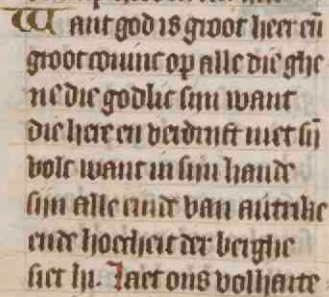 Want god is groot heer en̄
groot coninc op alle die ghe
ne die godlic sijn want
die here en verdrijft niet sij̄
volc want in sijn hande
sijn alle einde van aertrike
ende hoecheit der berghe
siet hi. Laet ons volherte